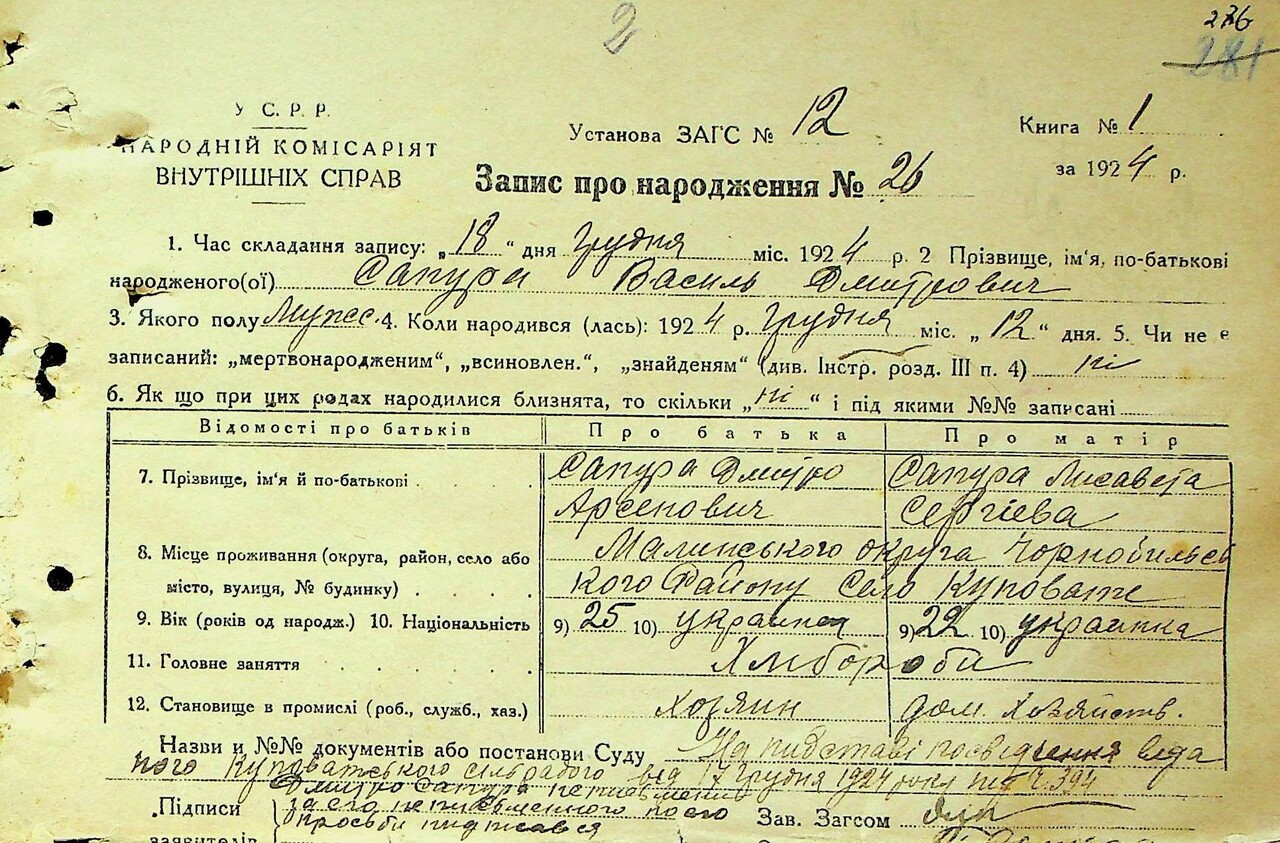 2
276
281
У С. Р. Р.
НАРОДНІЙ КОМІСАРІЯТ
ВНУТРІШНІХ СПРАВ
Установа ЗАГС № 12
Книга № 1
за 1924 р.
Запис про народження № 26
1. Час складання запису: „18“ дня Грудня міс. 1924 р. 2 Прізвище, ім'я, по-батькові
народженого(ої) Сапура Василь Дмитрович
3. Якого полу Мужс. 4. Коли народився (лась): 1924 р. Грудня міс. „12“ дня. 5. Чи не є
записаний: „мертвонародженим“, „всиновлен.“, „знайденям“ (див. Інстр. розд. III п. 4) ні
6. Як що при цих родах народилися близнята, то скільки „ні“ і під якими №№ записані
Відомості про батьків Про батька Про матір
7. Прізвище, ім'я й по-батькові Сапура Дмитро Сапура Лисавета
Арсенович Сергієва
8. Місце проживання (округа, район, село або Малинського округа Чорнобильсь
місто, вулиця, № будинку) кого Району Село Куповате
9. Вік (років од народж.) 10. Національність 9) 25 10) украинец 9) 22 10) украинка
11. Головне заняття Хлібороби
12. Становище в промислі (роб., служб., хаз.) хозяин дом. Хозяйств.
Назви и №№ документів або постанови Суду На підставі посвідчення веда
ного Куповатського сільрадою від 17 Грудня 1924 року під Ч. 394
Дмитро Сапура неписьменний
Підписи за его неписьменного по его
просьби підписався
Зав. Загсом
заявителів